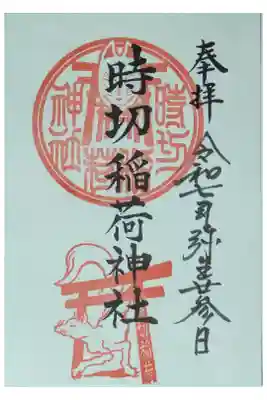 奉拝 令和七年弥生廿参日
時切稲荷神社
時切
神社